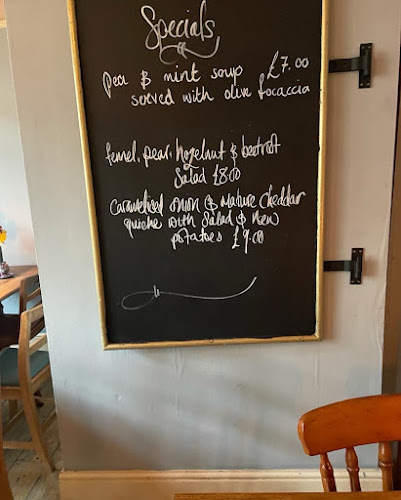 Specials
Pea & mint soup £7.00
served with olive focaccia
fennel, pear, hazelnut & beetroot
Salad £8.00
Caramelised onion & Mature Cheddar
quiche with Salad & New
potatoes £9.00